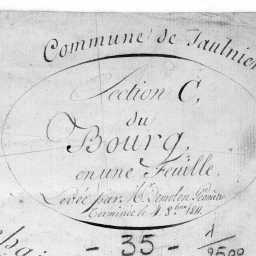 Commune de Taulnier
Section C,
du
Bourg,
en une Feuille.
Levée par Mr. Demolon Géomètre
Terminée le 4 8bre 1811.
- 35 - 1